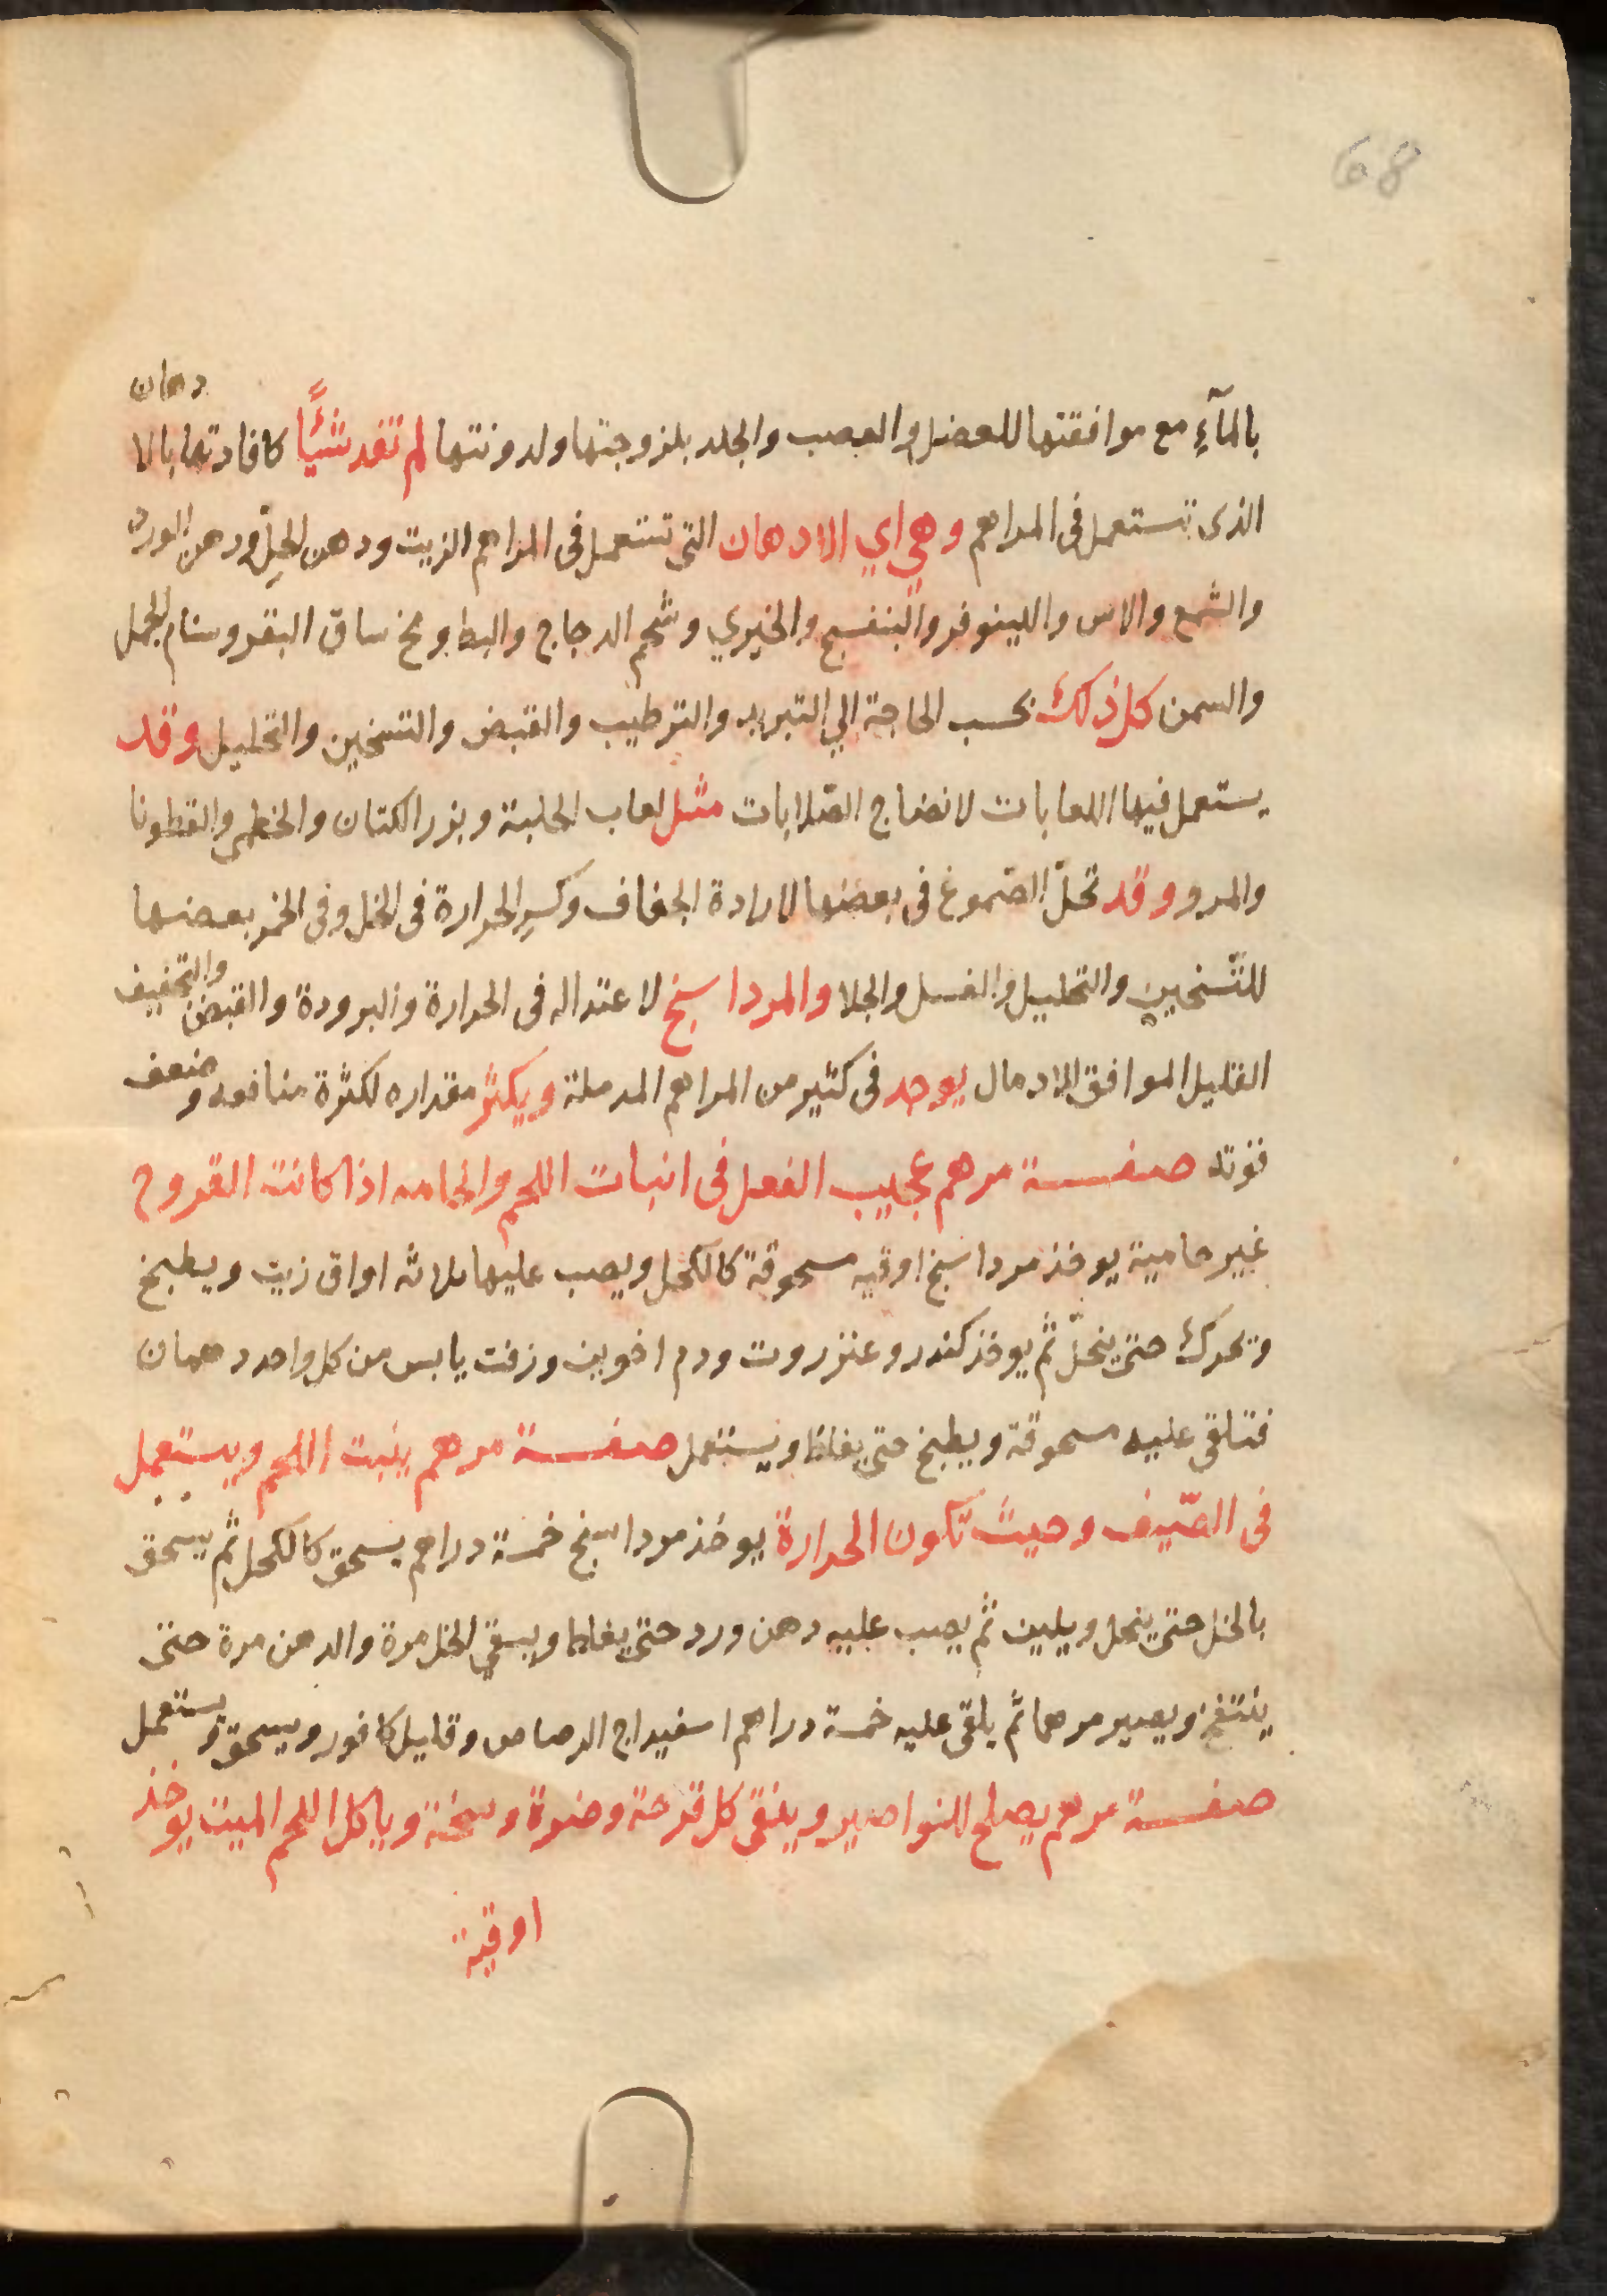 68
بالمآءِ مع موافقتها للعضل والعصب والجلد بلزوجتها ولدونتها لم تفد شيئًا كافادتها بالادهان
الذى تستعمل فى المراهم وهي اي الادهان التى تستعمل فى المراهم الزيت ودهن الحلّ ودهن الورد
والشمع والاس واللينوفر والبنفسج والخيري وشحم الدجاج والبط ومخ ساق البقر وسنام الجمل
والسمن كل ذلك بحسب الحاجة الي التبريد والترطيب والقبض والتسخين والتحليل وقد
يستعمل فيها اللعابات لانضاج الصّلابات مثل لعاب الحلبة وبزر الكتان والخطمى والقطونا
والمرو وقد تحلّ الصّموغ فى بعضها لارادة الجفاف وكسرِ الحرارة فى الخل وفى الخمر بعضها
للتّسخين والتحليل والغسل والجلا والمرداسنخ لاعتداله فى الحرارة والبرودة والقبض والتجفيف
القليل الموافق للادمال يوجد فى كثير من المراهم المدملة ويكثر مقداره لكثرة منافعه وضعف
قوته صفة مرهم عجيب الفعل فى انبات اللحم والحامه اذا كانت القروح
غير حامية يوخذ مرداسنخ اوقيه مسحوقة كالكحل ويصب عليها ثلاثه اواق زيت ويطبخ
وتحرك حتى ينحلّ ثم يوخذ كندر وعنزروت ودم اخوين وزفت يابس من كل واحد درهمان
فتلقى عليه مسحوقة ويطبخ حتى يغلظ ويستعمل صفة مرهم ينبت اللحم ويستعمل
فى الصّيف وحيث تكون الحرارة يوخذ مرداسنخ خمسة دراهم يسحق كالكحل ثم يسحق
بالخل حتى ينحل ويلين ثم يصب عليه دهن ورد حتى يغلظ ويسقي الخل مرة والدهن مرة حتى
ينتفخ ويصير مرهما ثم يلقى عليه خمسة دراهم اسفيداج الرصاص وقليل كافور ويسحق ويستعمل
صفة مرهم يصلح للنواصير وينقى كل قرحة وضرة وسخة وياكل اللحم الميت يوخذ
اوقية